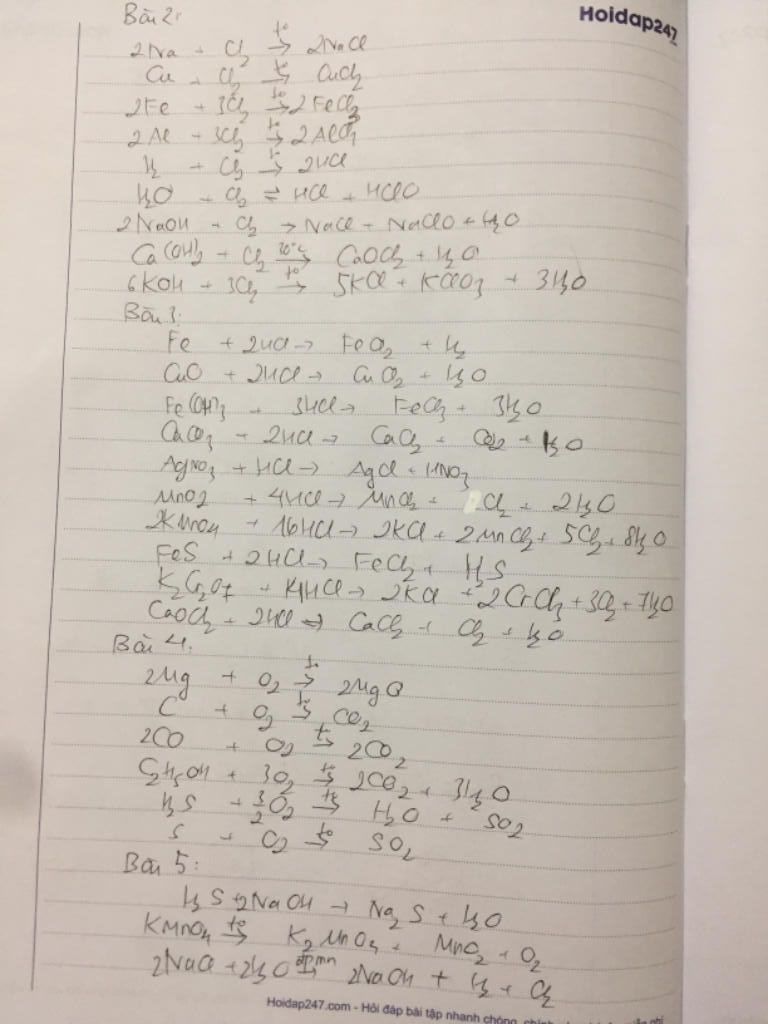 Hoidap247
Bài 2:
2Na + Cl2 t°→ 2NaCl
Cu + Cl2 t°→ CuCl2
2Fe + 3Cl2 t°→ 2FeCl3
2Al + 3Cl2 t°→ 2AlCl3
H2 + Cl2 t°→ 2HCl
H2O + Cl2 ⇌ HCl + HClO
2NaOH + Cl2 → NaCl + NaClO + H2O
Ca(OH)2 + Cl2 30°C→ CaOCl2 + H2O
6KOH + 3Cl2 t°→ 5KCl + KClO3 + 3H2O
Bài 3:
Fe + 2HCl → FeCl2 + H2
CuO + 2HCl → CuCl2 + H2O
Fe(OH)3 + 3HCl → FeCl3 + 3H2O
CaCO3 + 2HCl → CaCl2 + CO2 + H2O
AgNO3 + HCl → AgCl + HNO3
MnO2 + 4HCl → MnCl2 + Cl2 + 2H2O
2KMnO4 + 16HCl → 2KCl + 2MnCl2 + 5Cl2 + 8H2O
FeS + 2HCl → FeCl2 + H2S
K2Cr2O7 + 14HCl → 2KCl + 2CrCl3 + 3Cl2 + 7H2O
CaOCl2 + 2HCl → CaCl2 + Cl2 + H2O
Bài 4:
2Mg + O2 t°→ 2MgO
C + O2 t°→ CO2
2CO + O2 t°→ 2CO2
C2H5OH + 3O2 t°→ 2CO2 + 3H2O
H2S + 3/2O2 t°→ H2O + SO2
S + O2 t°→ SO2
Bài 5:
H2S + 2NaOH → Na2S + H2O
KMnO4 t°→ K2MnO4 + MnO2 + O2
2NaCl + 2H2O đpmn→ 2NaOH + H2 + Cl2
Hoidap247.com - Hỏi đáp bài tập nhanh chóng, chính